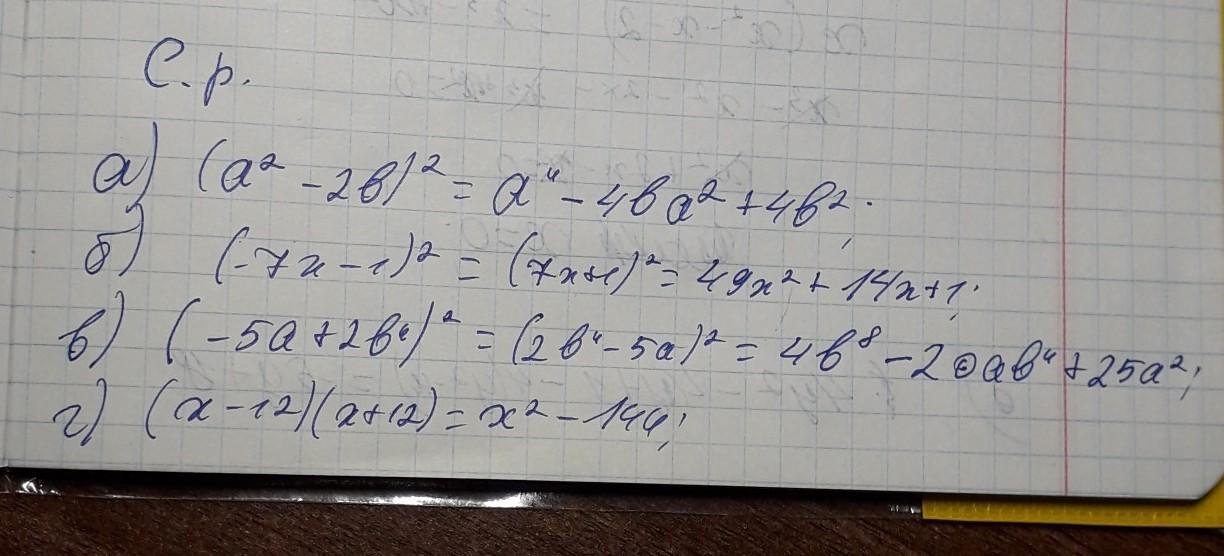 С.р.
а) (a² - 2b)² = a⁴ - 4ba² + 4b²;
б) (-7x - 1)² = (7x+1)² = 49x² + 14x + 1;
в) (-5a + 2b⁴)² = (2b⁴ - 5a)² = 4b⁸ - 20ab⁴ + 25a²;
г) (x - 12)(x + 12) = x² - 144;